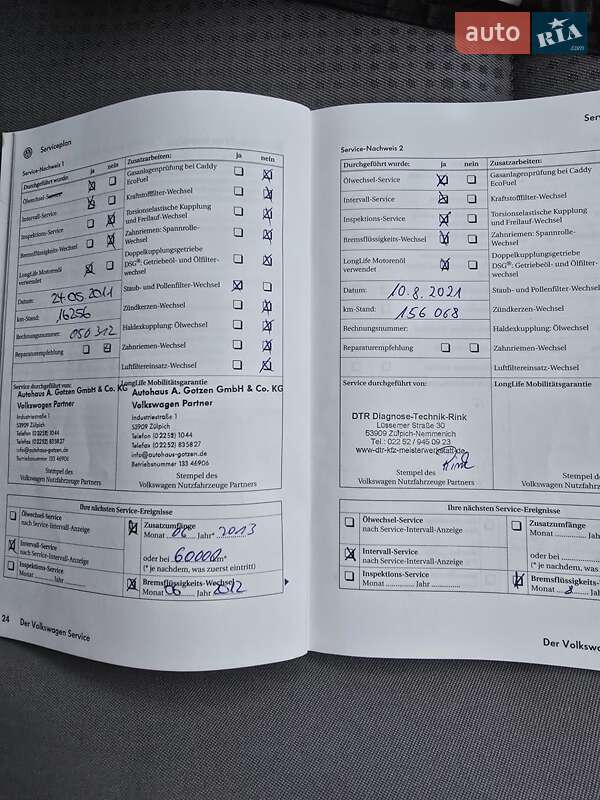 auto RIA.com
Serviceplan
Service-Nachweis 1
Durchgeführt wurde: ja nein Zusatzarbeiten: ja nein
Ölwechsel-Service
Gasanlagenprüfung bei Caddy EcoFuel
Intervall-Service
Kraftstofffilter-Wechsel
Inspektions-Service
Torsionselastische Kupplung und Freilauf-Wechsel
Bremsflüssigkeits-Wechsel
Zahnriemen: Spannrolle-Wechsel
LongLife Motorenöl verwendet
Doppelkupplungsgetriebe DSG®: Getriebeöl- und Ölfilter-wechsel
Datum: 24.05.2011
Staub- und Pollenfilter-Wechsel
km-Stand: 16256
Zündkerzen-Wechsel
Rechnungsnummer: 050 312
Haldexkupplung: Ölwechsel
Reparaturempfehlung
Zahnriemen-Wechsel
Luftfiltereinsatz-Wechsel
Service durchgeführt von: LongLife Mobilitätsgarantie
Autohaus A. Gotzen GmbH & Co. KG Autohaus A. Gotzen GmbH & Co. KG
Volkswagen Partner Volkswagen Partner
Industriestraße 1 Industriestraße 1
53909 Zülpich 53909 Zülpich
Telefon (02252) 1044 Telefon (02252) 1044
Telefax (02252) 835827 Telefax (02252) 835827
info@autohaus-gotzen.de info@autohaus-gotzen.de
Betriebsnummer 133 46906 Betriebsnummer 133 46906
Stempel des Stempel des
Volkswagen Nutzfahrzeuge Partners Volkswagen Nutzfahrzeuge Partners
Ihre nächsten Service-Ereignisse
Ölwechsel-Service
nach Service-Intervall-Anzeige
Zusatzumfänge
Monat 06 Jahr* 2013
Intervall-Service
nach Service-Intervall-Anzeige
oder bei 60000 km*
(* je nachdem, was zuerst eintritt)
Inspektions-Service
Monat Jahr
Bremsflüssigkeits-Wechsel
Monat 06 Jahr 2012
24 Der Volkswagen Service
Service-Nachweis 2
Durchgeführt wurde: ja nein Zusatzarbeiten:
Ölwechsel-Service
Gasanlagenprüfung bei Caddy EcoFuel
Intervall-Service
Kraftstofffilter-Wechsel
Inspektions-Service
Torsionselastische Kupplung und Freilauf-Wechsel
Bremsflüssigkeits-Wechsel
Zahnriemen: Spannrolle-Wechsel
LongLife Motorenöl verwendet
Doppelkupplungsgetriebe DSG®: Getriebeöl- und Ölfilter-wechsel
Datum: 10.8.2021
Staub- und Pollenfilter-Wechsel
km-Stand: 156 068
Zündkerzen-Wechsel
Rechnungsnummer:
Haldexkupplung: Ölwechsel
Reparaturempfehlung
Zahnriemen-Wechsel
Luftfiltereinsatz-Wechsel
Service durchgeführt von: LongLife Mobilitätsgarantie
DTR Diagnose-Technik-Rink
Lüssemer Straße 30
53909 Zülpich-Nemmenich
Tel.: 022 52 / 945 09 23
www-dtr-kfz-meisterwerkstatt.de
Stempel des
Volkswagen Nutzfahrzeuge Partners
Ihre nächsten Service-Ereignisse
Ölwechsel-Service
nach Service-Intervall-Anzeige
Zusatzumfänge
Monat
Intervall-Service
nach Service-Intervall-Anzeige
oder bei
(* je nachdem, was
Inspektions-Service
Monat Jahr
Bremsflüssigkeits-
Monat 8
Der Volkswa